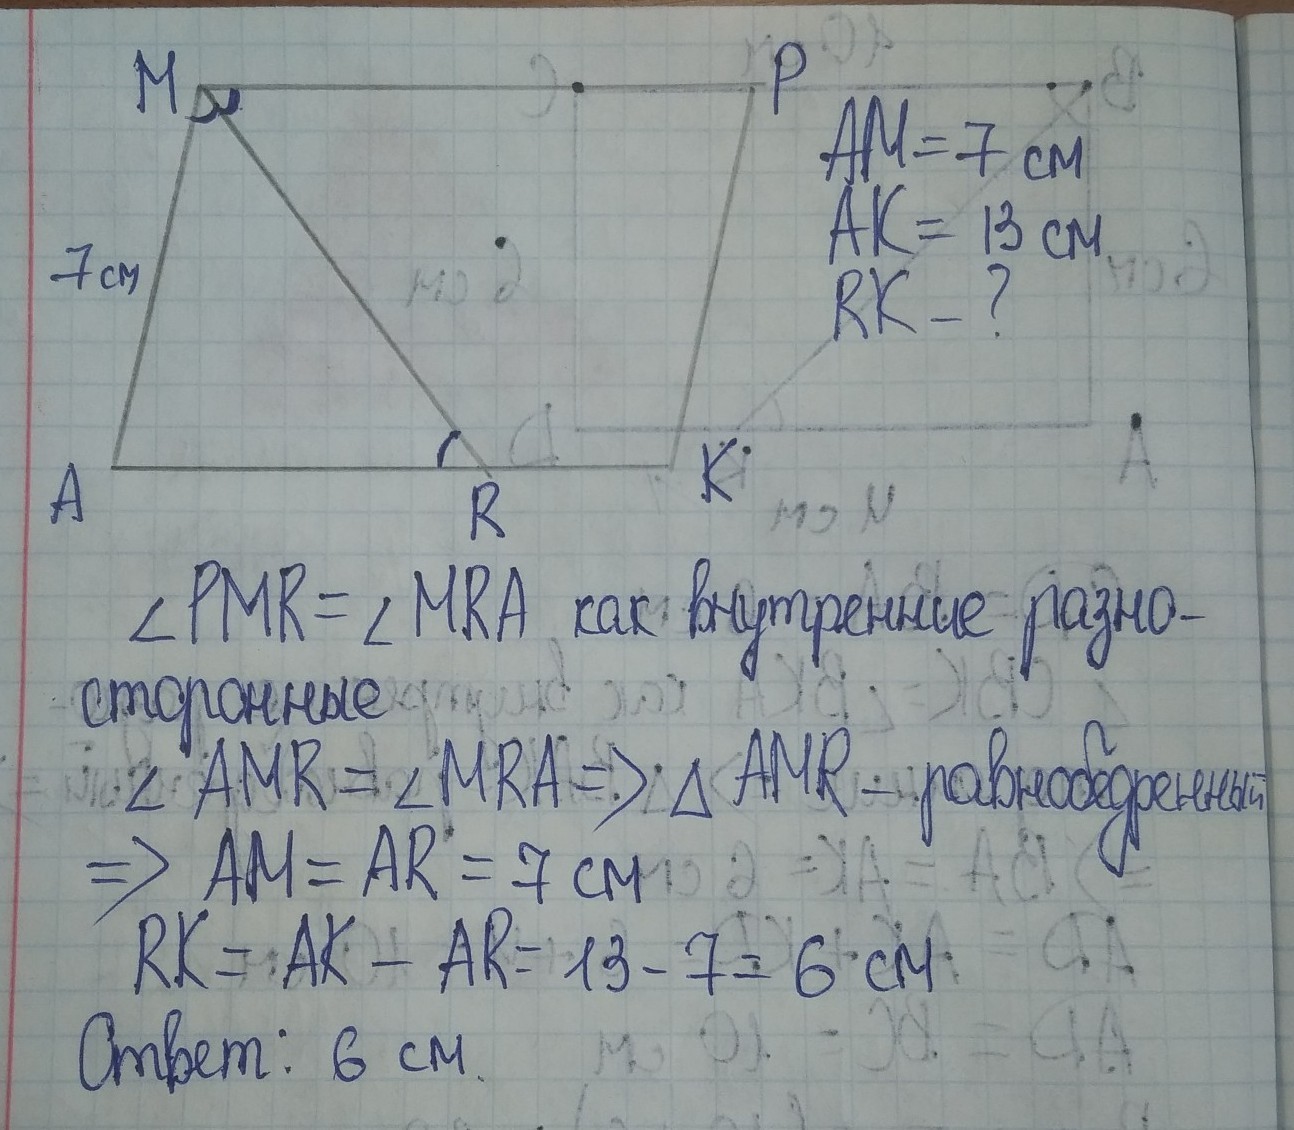 M
P
AM = 7 см
AK = 13 см
RK - ?
7 см
A
R
K
∠ PMR = ∠ MRA как внутренние разно-
сторонные
∠ AMR = ∠ MRA => △ AMR - равнобедренный
=> AM = AR = 7 см
RK = AK - AR = 13 - 7 = 6 см
Ответ: 6 см.